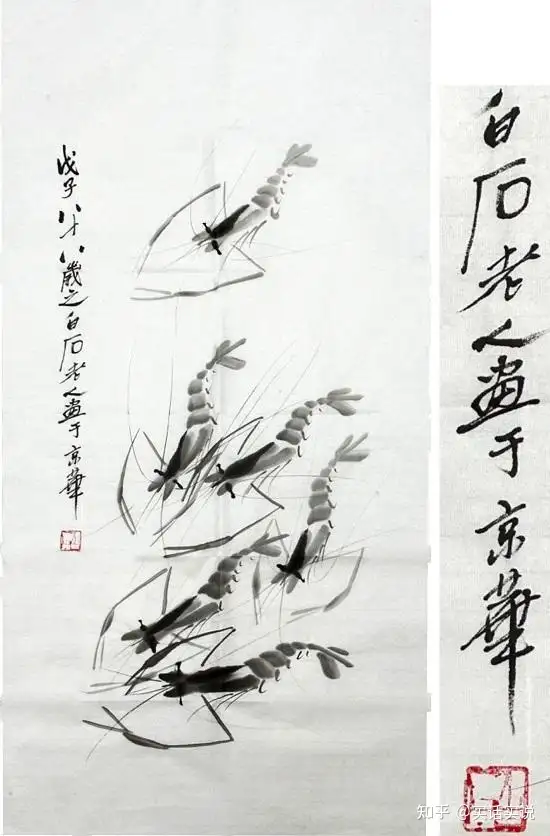 戊子八十八歲之白石老人畫于京華
白石老人畫于京華
知乎 @实话实说